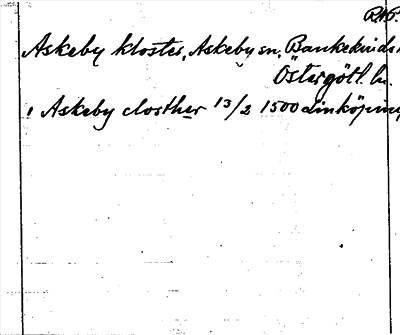 RAP.
Askeby kloster, Askeby sn, Bankekinds
Östergötl. ln.
i Askeby closther 13/2 1500 Linköping